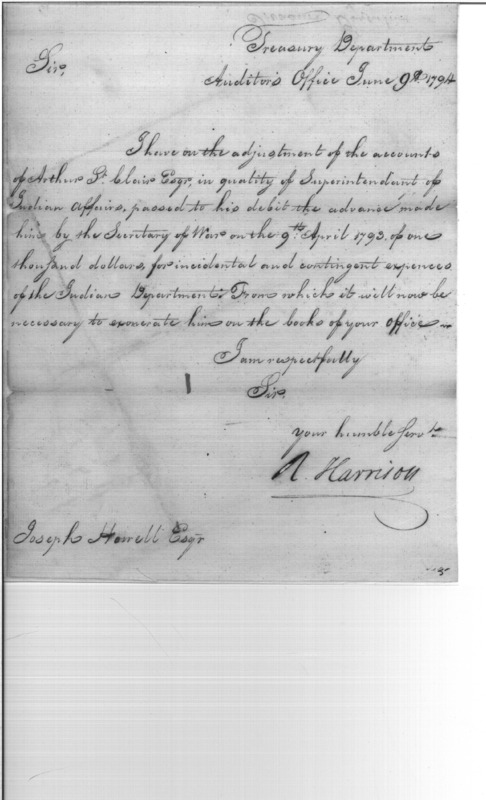 Treasury Department
Sir,
Auditor's Office June 9th 1794
I have on the adjustment of the accounts
of Arthur St. Clair Esqr, in quality of Superintendant of
Indian Affairs, passed to his debit the advance made
him by the Secretary of War on the 9th April 1793, of one
thousand dollars, for incidental and contingent expences
of the Indian Department: From which it will now be
necessary to exonerate him on the books of your office
I am respectfully
Sir,
your humble Servt
R. Harrison
Joseph Howell Esqr